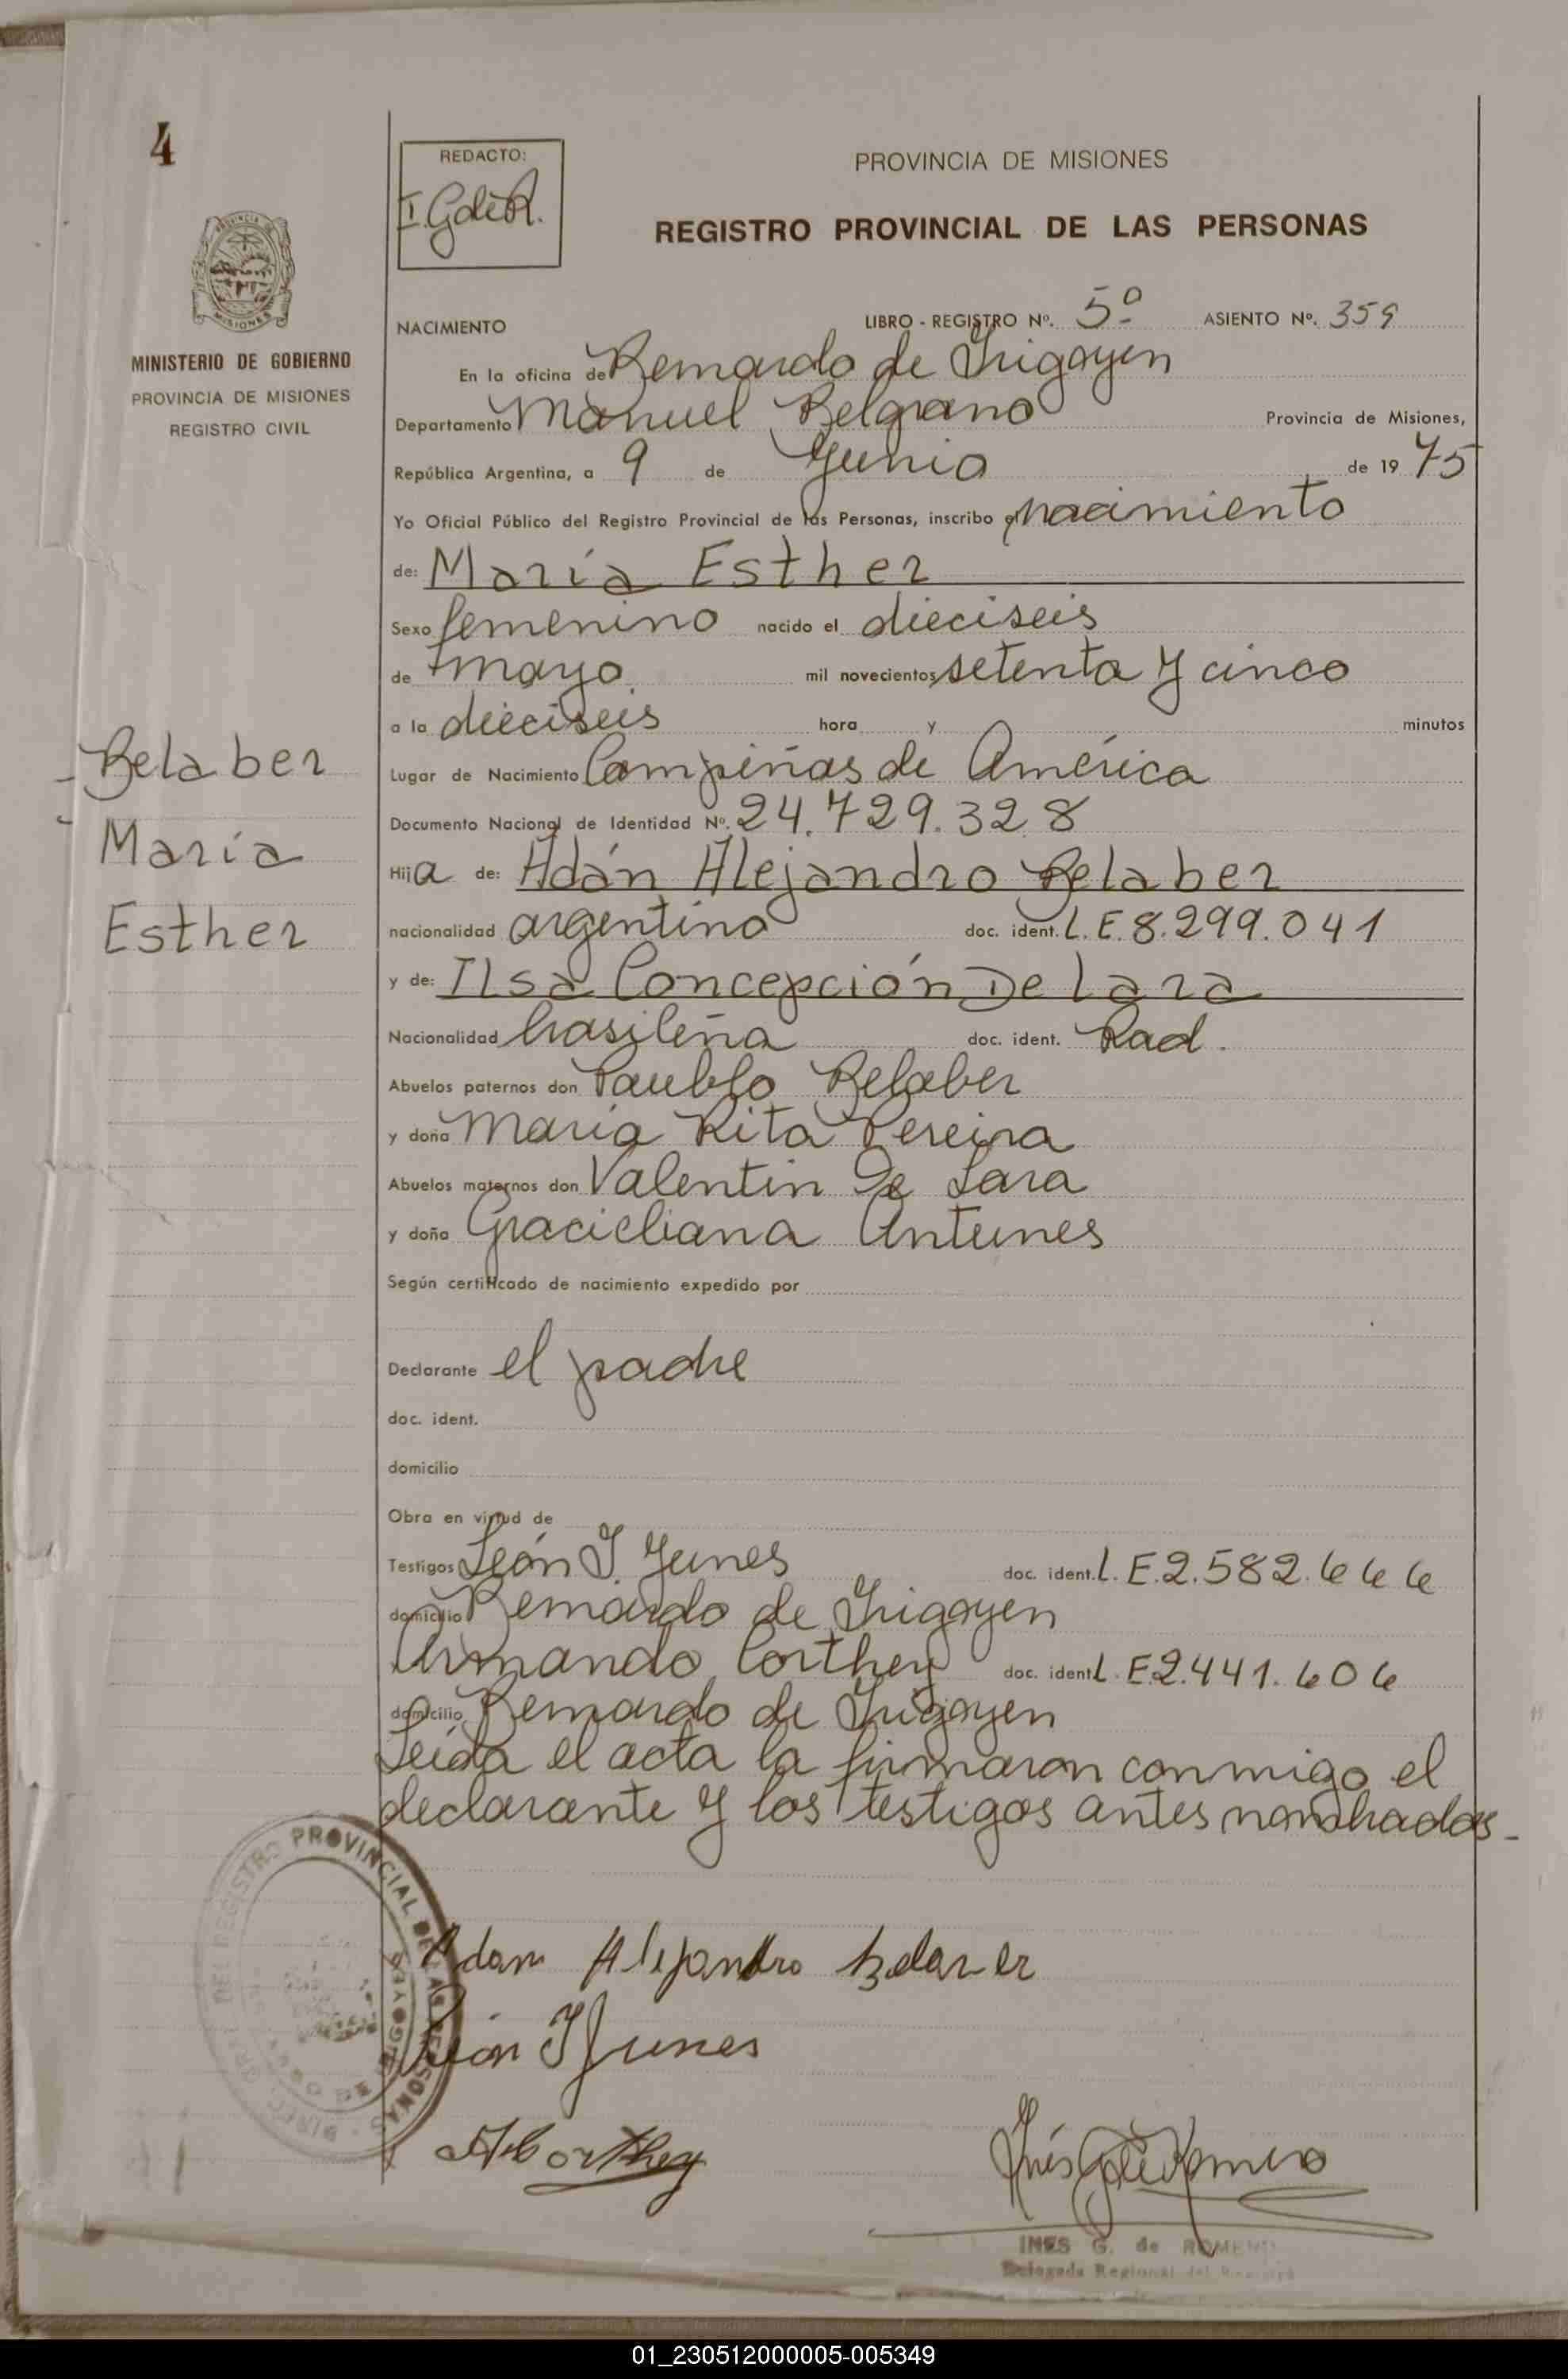 4
REDACTO:
I. G de R.
PROVINCIA DE MISIONES
REGISTRO PROVINCIAL DE LAS PERSONAS
MISIONES
MINISTERIO DE GOBIERNO
PROVINCIA DE MISIONES
REGISTRO CIVIL
NACIMIENTO LIBRO - REGISTRO Nº. 5º ASIENTO Nº. 359
En la oficina de Bernardo de Irigoyen
Departamento Manuel Belgrano Provincia de Misiones,
República Argentina, a 9 de Junio de 19 75
Yo Oficial Público del Registro Provincial de las Personas, inscribo el nacimiento
de: María Esther
Sexo femenino nacido el dieciseis
de mayo mil novecientos setenta y cinco
a la dieciseis hora y minutos
Belaber
María
Esther
Lugar de Nacimiento Campiñas de América
Documento Nacional de Identidad Nº. 24.729.328
Hija de: Adán Alejandro Belaber
nacionalidad argentino doc. ident. L.E.8.299.041
y de: Ilsa Concepción De lara
Nacionalidad brasileña doc. ident. Rad.
Abuelos paternos don Paublo Belaber
y doña María Rita Pereira
Abuelos maternos don Valentin De Lara
y doña Gracieliana Antunes
Según certificado de nacimiento expedido por
Declarante el padre
doc. ident.
domicilio
Obra en virtud de
Testigos León J. Yunes doc. ident. L.E.2.582.666
domicilio Bernardo de Irigoyen
Armando Corthey doc. ident L.E.2.441.606
domicilio Bernardo de Irigoyen
Leida el acta la firmaron conmigo el
declarante y los testigos antes nombrados.-
DEL REGISTRO PROVINCIAL DE LAS PERSONAS
Adan Alejandro Belaver
León J Yunes
A Corthey
Inés G de Romero
INES G. de ROMERO
Delegada Regional del
01_230512000005-005349